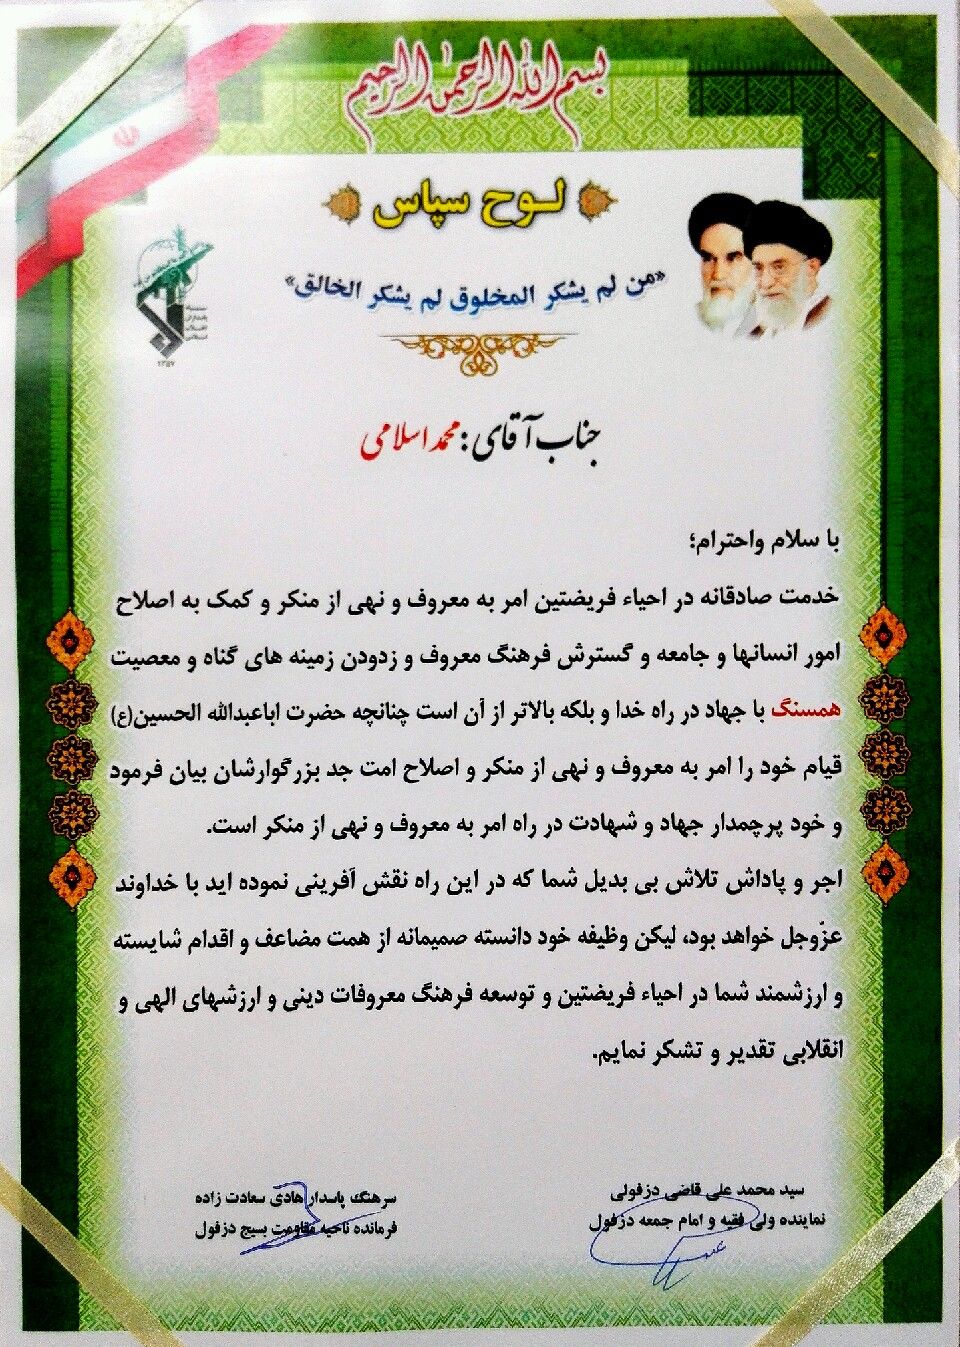 بسم الله الرحمن الرحیم
لوح سپاس
«من لم یشکر المخلوق لم یشکر الخالق»
سپاه
پاسداران
انقلاب
اسلامی
۱۳۵۷
جناب آقای: محمد اسلامی
با سلام واحترام؛
خدمت صادقانه در احیاء فریضتین امر به معروف و نهی از منکر و کمک به اصلاح
امور انسانها و جامعه و گسترش فرهنگ معروف و زدودن زمینه های گناه و معصیت
همسنگ با جهاد در راه خدا و بلکه بالاتر از آن است چنانچه حضرت اباعبدالله الحسین(ع)
قیام خود را امر به معروف و نهی از منکر و اصلاح امت جد بزرگوارشان بیان فرمود
و خود پرچمدار جهاد و شهادت در راه امر به معروف و نهی از منکر است.
اجر و پاداش تلاش بی بدیل شما که در این راه نقش آفرینی نموده اید با خداوند
عزّوجل خواهد بود، لیکن وظیفه خود دانسته صمیمانه از همت مضاعف و اقدام شایسته
و ارزشمند شما در احیاء فریضتین و توسعه فرهنگ معروفات دینی و ارزشهای الهی و
انقلابی تقدیر و تشکر نمایم.
سید محمد علی قاضی دزفولی
نماینده ولی فقیه و امام جمعه دزفول
سرهنگ پاسدار هادی سعادت زاده
فرمانده ناحیه مقاومت بسیج دزفول